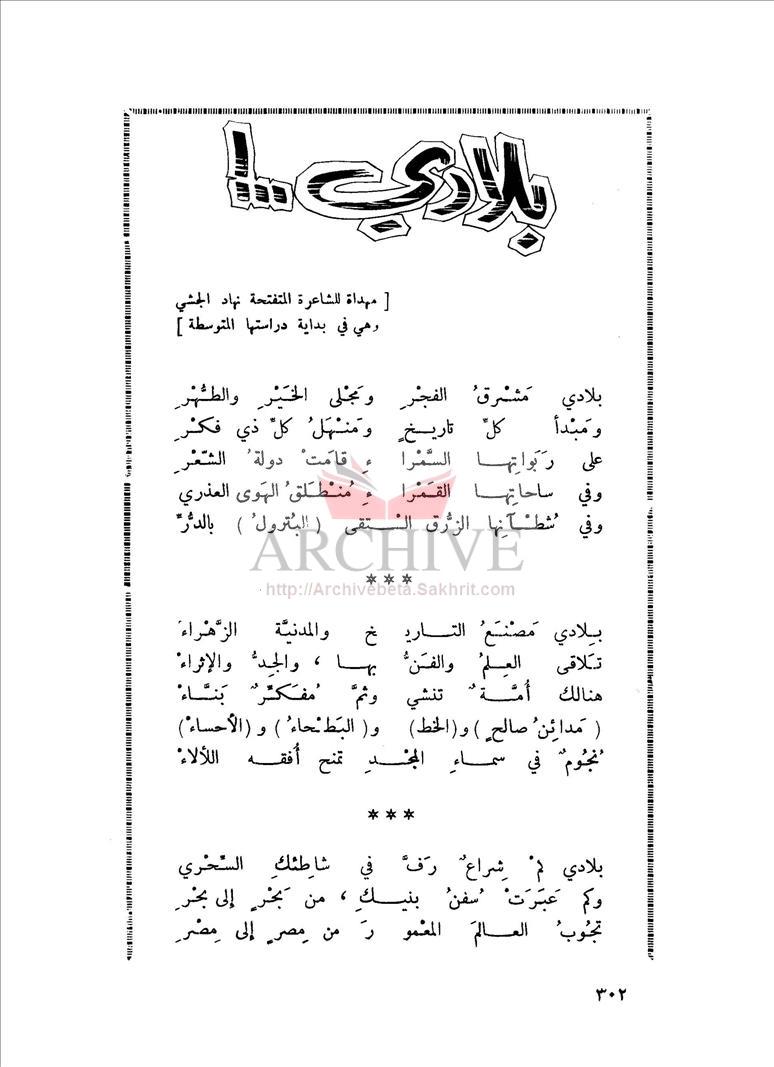 بلادي ...!
[ مهداة للشاعرة المتفتحة نهاد الجشي
وهي في بداية دراستها المتوسطة ]
بلادي مَشْرقُ الفجْرِ ومَجْلى الخَيْرِ والطُّهْرِ
ومَبْدأ كلِّ تاريخٍ ومَنْهَلُ كلِّ ذي فكْرِ
على رَبَواتِها السَّمْرا ءِ قامَتْ دولةُ الشّعْرِ
وفي ساحاتِها القَمْرا ءِ مُنْطَلَقُ الهَوى العذري
وفي شُطْآنِها الزُّرق الْتقى ( البُترولُ ) بالدُّرِّ
ARCHIVE
http://Archivebeta.Sakhrit.com
***
بلادي مَصْنَعُ التاريـ خ والمدنيَّة الزَّهْراءَ
تلاقى العِلمُ والفَنُّ بها ، والجِدُّ والإثراءْ
هنالك أُمَّةٌ تنشي وثمَّ مُفَكِّرٌ بَنَّاءْ
( مَدائِنُ صالحٍ ) و(الخط) و( البَطْحاءُ ) و ( الأحساءْ )
نُجُومٌ في سماءِ المجْدِ تمنح أُفقه اللألاءْ
***
بلادي لمْ شِراعٌ رَفَّ في شاطِئكِ السِّحْري
وكم عَبَرَتْ سُفنُ بنيكِ ، من بَحْرٍ إلى بحْرِ
تجُوبُ العالمَ المعْمو رَ من مِصرٍ إلى مِصْرِ
٣٠٢